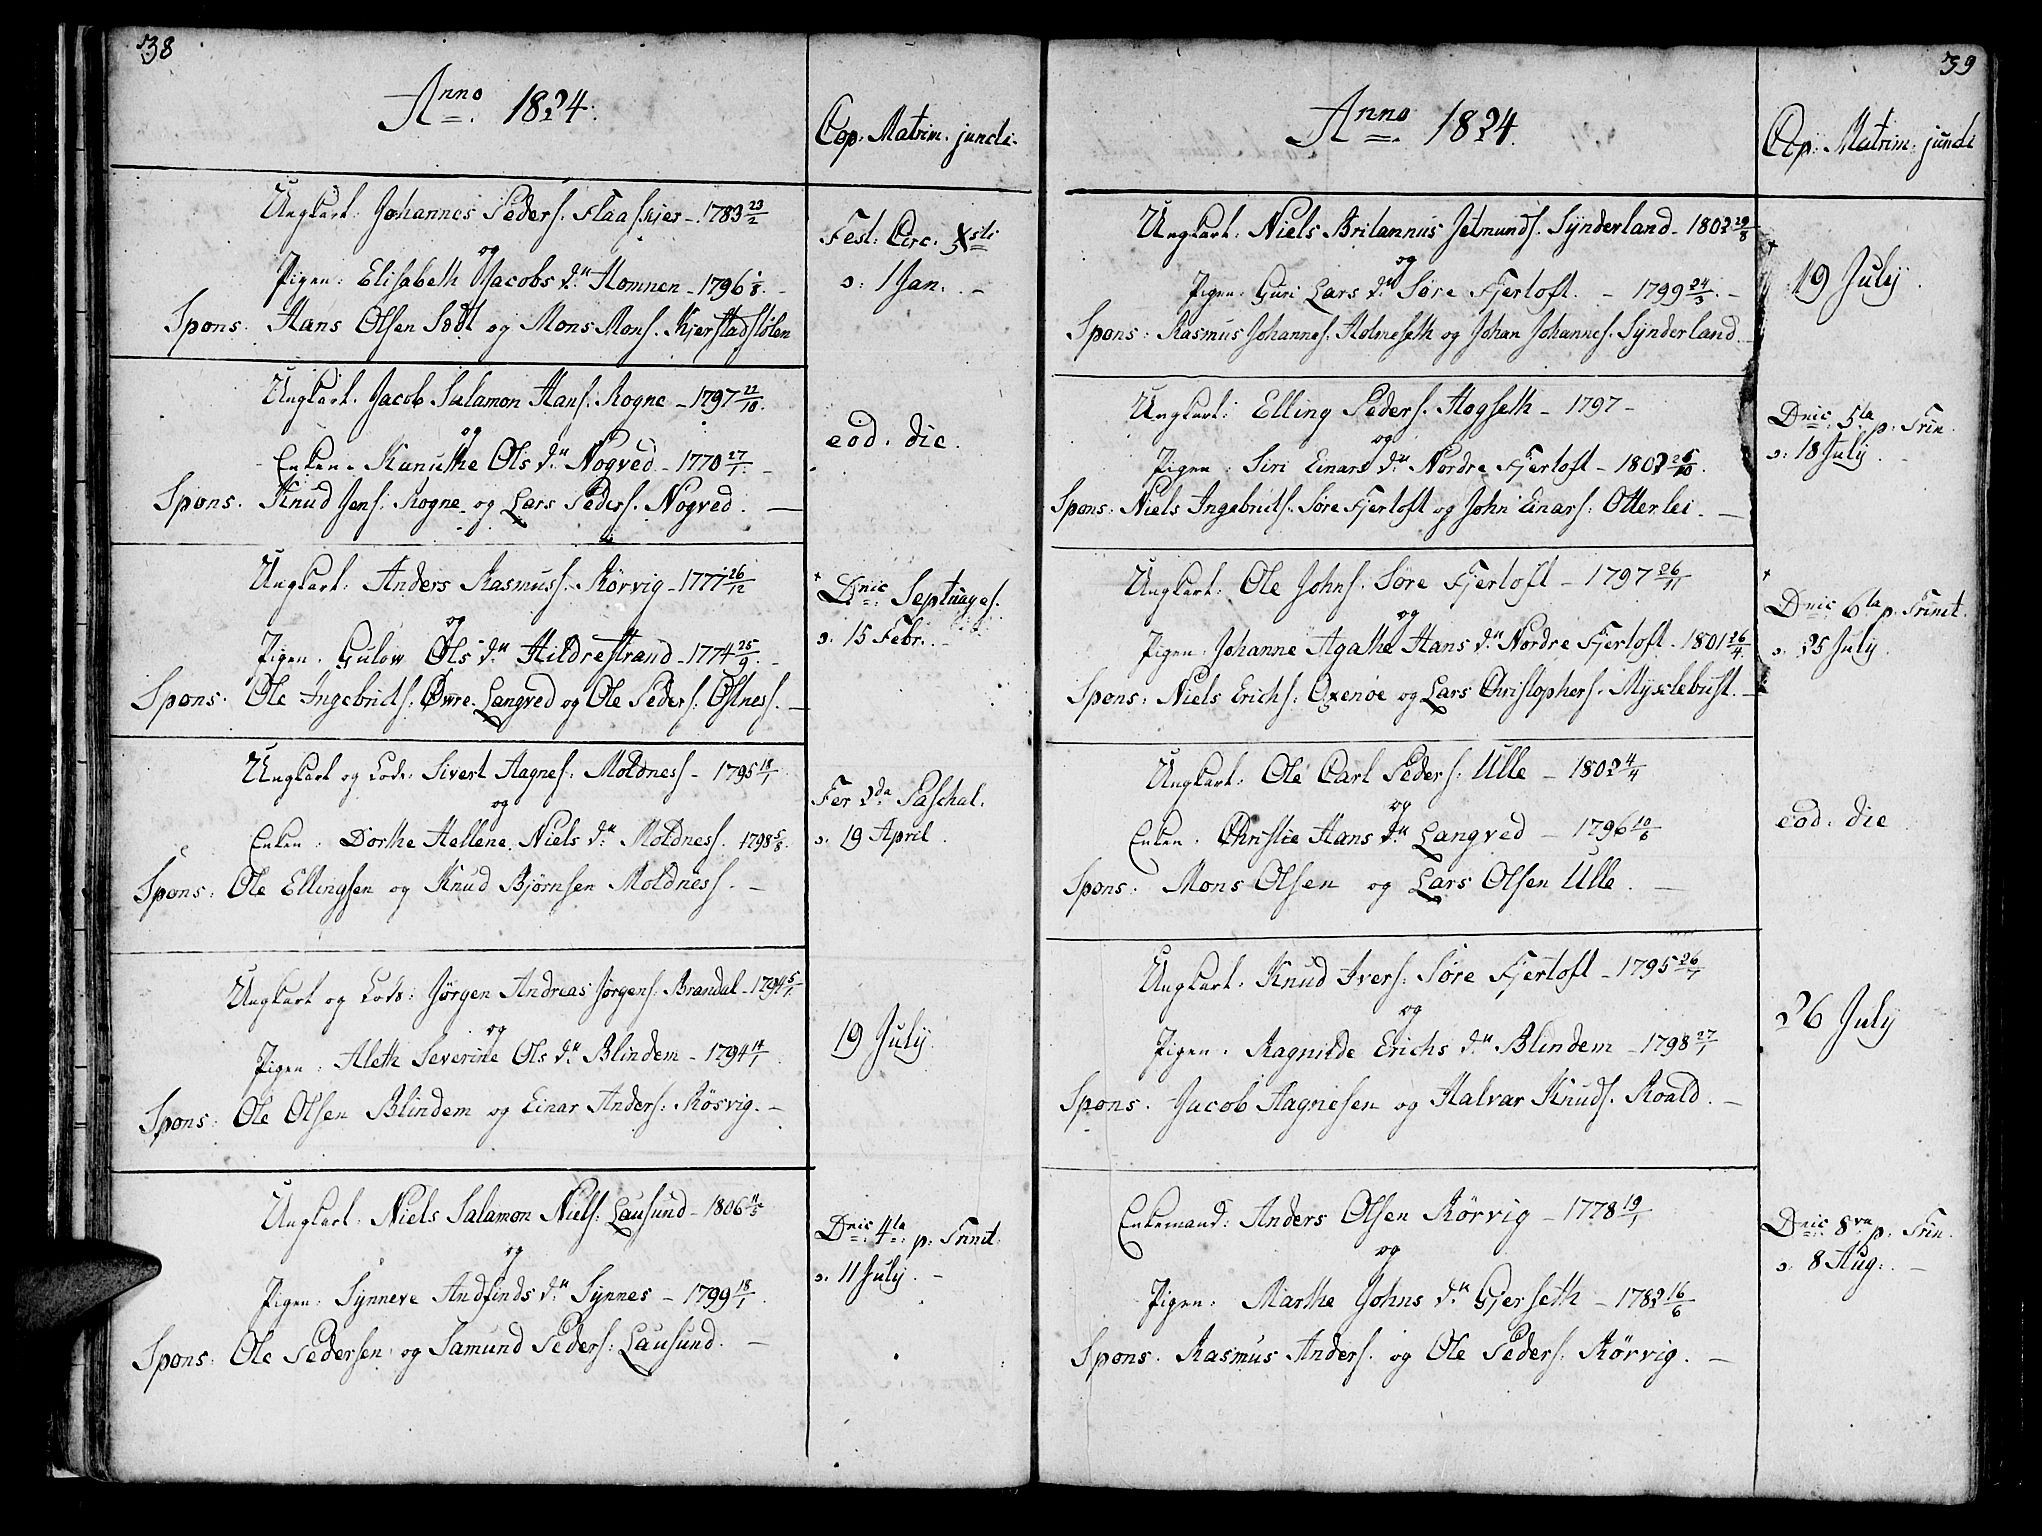 38
Anno 1824.
Cop. Matrim. juncti.
Ungkart: Johannes Peders. Flaaskjer - 1783 23/2
og
Pigen: Elisabeth Jacobs dr. Homnen - 1796 1/8. -
Spons. Hans Olsen Sødt og Mons Mons. Kjerstadstølen
Fest: Circ. Xsti
o: 1 Jan. -
Ungkart. Jacob Salamon Hans. Rogne - 1797 22/10.
og
Enken. Kanuthe Ols dr. Nogved - 1770 27/1. -
Spons. Knud Jens. Rogne og Lars Peders. Nogved. -
eod. die.
Ungkart: Anders Rasmuss. Rörvig - 1771 26/12
og
Pigen. Gulow Ols dr. Hildrestrand - 1774 25/9. -
Spons. Ole Ingebrits: Øvre Langved og Ole Peders. Østness. -
Dnic: Septuages.
o: 15 Febr. -
Ungkart og Lods: Sivert Aagnes: Moldness - 1795 18/1
og
Enken. Dorthe Hellene Niels dr. Moldness. 1798 5/8.
Spons: Ole Ellingsen og Knud Bjørnsen Moldness. -
Fer 2da Paschal.
o. 19 April.
Ungkart og Lods: Jörgen Andreas Jörgens: Brandal - 1794 5/1.
og
Pigen: Aleth Severine Ols dr. Blindem - 1794 14/1
Spons: Ole Olsen Blindem og Einar Anders: Rösvig. -
19 July.
Ungkart. Niels Salamon Niels: Lausund - 1806 11/5
og
Pigen: Synneve Andfinds dr. Synnes - 1799 18/1.
Spons: Ole Pedersen og Samund Peders: Lausund. -
Dnic: 4ta: p: Trinit:
o. 11 July. -
39
Anno 1824.
Cop: Matrim: juncti
Ungkart. Niels Britannus Jetmunds. Synderland - 1802 29/8
og
Pigen. Guri Lars dr. Söre Fjertoft. - 1799 24/3. -
Spons: Rasmus Johannes. Holmeseth og Johan Johannes. Synderland
19 July.
Ungkart: Elling Peders. Hogseth - 1797 -
og
Pigen: Siri Einars dr. Nordre Fjertoft - 1802 25/10.
Spons: Niels Ingebrits. Söre Fjertoft og John Einars: Otterlei. -
Dnic: 5ta p: Trin.
o. 18 July. -
Ungkart: Ole Johns. Söre Fjertoft - 1797 26/11
og
Pigen: Johanne Agathe Hans dr. Nordre Fjertoft - 1801 26/4
Spons: Niels Erichs: Oxenøe og Lars Christophers. Mycklebust. -
Dnic 6ta p: Trinit.
o. 25 July.
Ungkart: Ole Carl Peders: Ulle - 1802 4/4
og
Enken. Christie Hans dr. Langved - 1796 10/6
Spons: Mons Olsen og Lars Olsen Ulle. -
eod. die
Ungkart: Knud Ivers: Söre Fjertoft - 1795 26/7
og
Pigen. Ragnilde Erichs dr. Blindem - 1798 27/1
Spons. Jacob Aagnesen og Halvar Knuds. Roald. -
26 July
Enkemand: Anders Olsen Rörvig - 1778 19/1
og
Pigen: Marthe Johns dr. Gjerseth - 1782 16/6
Spons. Rasmus Anders. og Ole Peders. Rörvig. -
Dnic 8va p: Trin.
o. 8 Aug: -